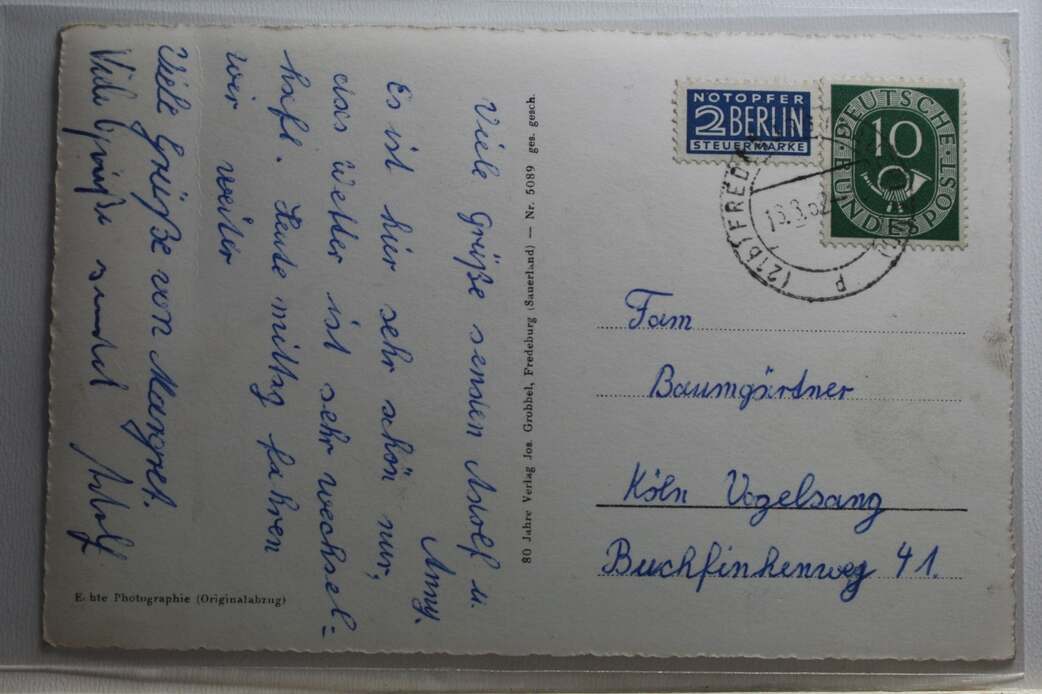 Viele Grüße senden Adolf u.
Anny.
Es ist hier sehr schön nur,
das Wetter ist sehr wechsel-
haft. Heute mittag fahren
wir weiter
Viele Grüße von Margret.
Viele Grüße sendet Adolf
80 Jahre Verlag Jos. Grobbel, Fredeburg (Sauerland) — Nr. 5089 ges. gesch.
Echte Photographie (Originalabzug)
NOTOPFER
2 BERLIN
STEUERMARKE
DEUTSCHE
BUNDESPOST
10
(21b) FREDE
Fam
Baumgärtner
Köln Vogelsang
Buchfinkenweg 41.